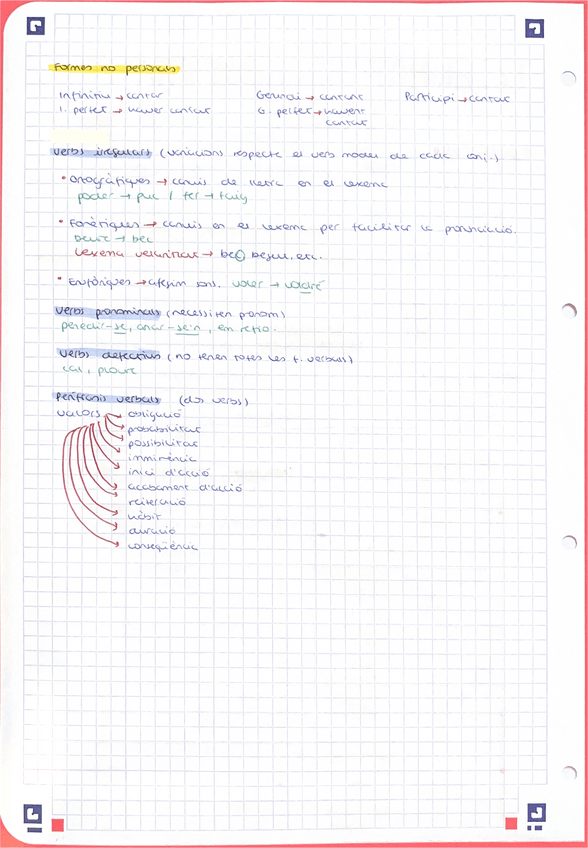 Formes no personals
Infinitiu → cantar Gerundi → cantant Participi → cantat
I. perfet → haver cantat G. perfet → havent
cantat
Verbs irregulars (variacions respecte el verb model de cada conj.)
• Ortogràfiques → canvis de lletra en el lexema
poder → puc / fer → faig
• Fonètiques → canvis en el lexema per facilitar la pronunciació.
beure → bec
Lexema velaritzat → bec, begui, etc.
• Eufòniques → afegim sons. valer → valdré
Verbs pronominals (necessiten pronom)
penedir-se, anar-se'n, em refio.
Verbs defectius (no tenen totes les f. verbals)
cal, ploure
Perífrasis verbals (dos verbs)
valors → obligació
probabilitat
possibilitat
imminència
inici d'acció
acabament d'acció
reiteració
hàbit
duració
conseqüència